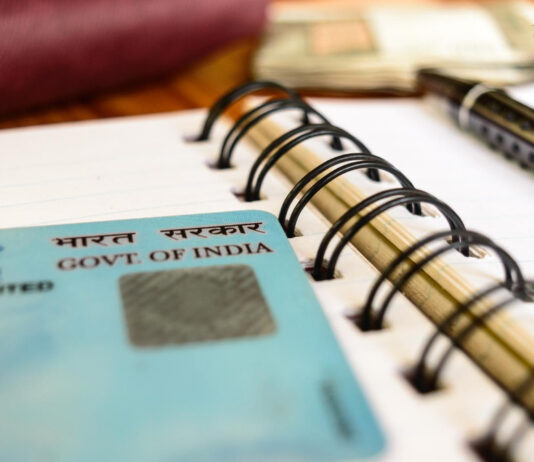 भारत सरकार
GOVT. OF INDIA